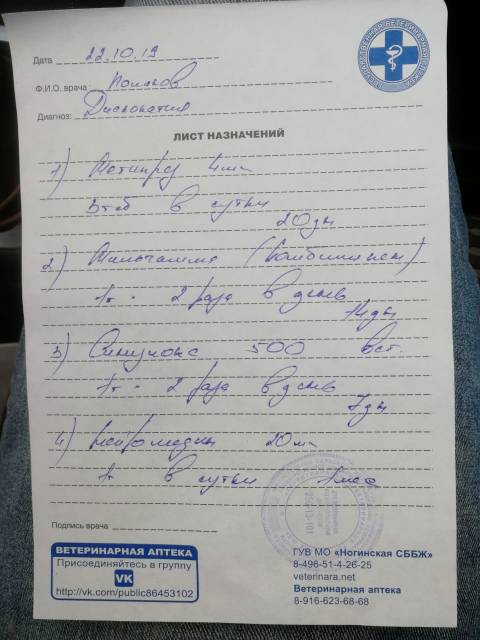 Дата 22.10.19
Ф.И.О. врача Поляков
Диагноз: Дископатия
ЛИСТ НАЗНАЧЕНИЙ
1) Метипред 4мг
3таб в сутки
20дн
2) Мильгамма (Комбилипен)
1т - 2 раза в день
14дн
3) 500
1т - 2 раза в день
7дн
4) Нейромедин 20мг
1т в сутки 1мес
Подпись врача
ВЕТЕРИНАРНАЯ АПТЕКА
Присоединяйтесь в группу
VK
http://vk.com/public86453102
ГУВ МО «Ногинская СББЖ»
8-496-51-4-26-25
veterinara.net
Ветеринарная аптека
8-916-623-68-68